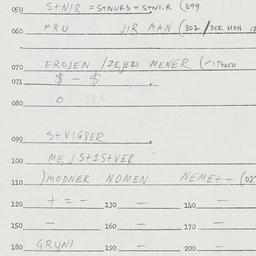 050 S+NIR = S+NURS = S+NI.R (899
060 FRU JIR MAN (302 / DER MAN
070 FROJEN / ZEJERI MENER (174050
071 $ - $
080 O
090 S+VIG8ER
100 MEJS+2S+VER
110 )MODNER NOMEN NEMET - (02
120 + = - 130 - 140 -
150 - 160 - 170 -
180 GRUNI 190 - 200 -